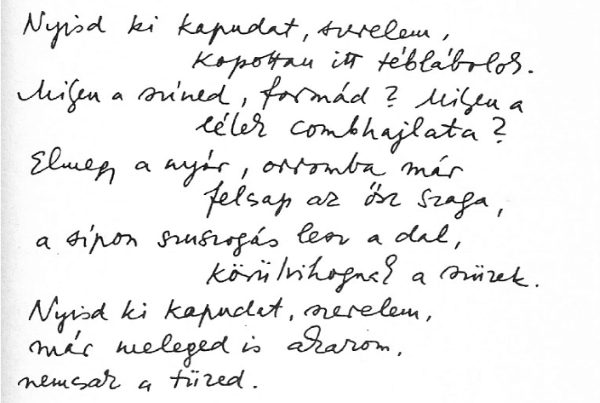 Nyisd ki kapudat, szerelem,
kopottan itt téblábolok.
Milyen a színed, formád? Milyen a
lélek combhajlata?
Elmegy a nyár, orromba már
felcsap az ősz szaga,
a sípon szuszogás lesz a dal,
körülvihognak a szüzek.
Nyisd ki kapudat, szerelem,
már meleged is akarom,
nemcsak a tüzed.